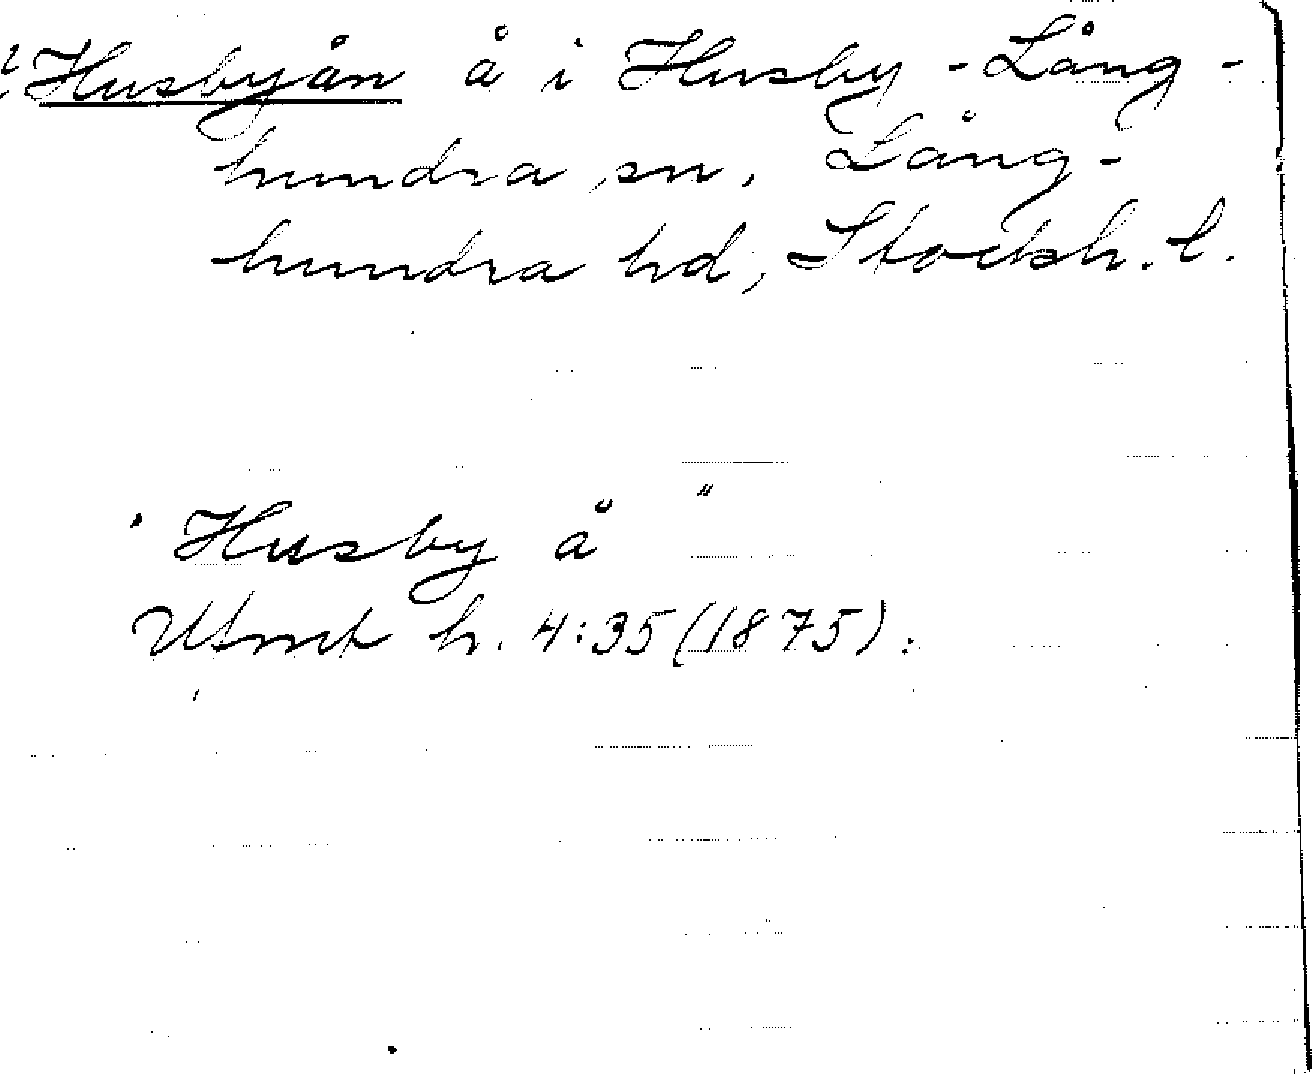 Husbyån å i Husby-Lång-
hundra sn, Lång-
hundra hd, Stockh. l.
"Husby å"
Utmt h. 4:35 (1875).